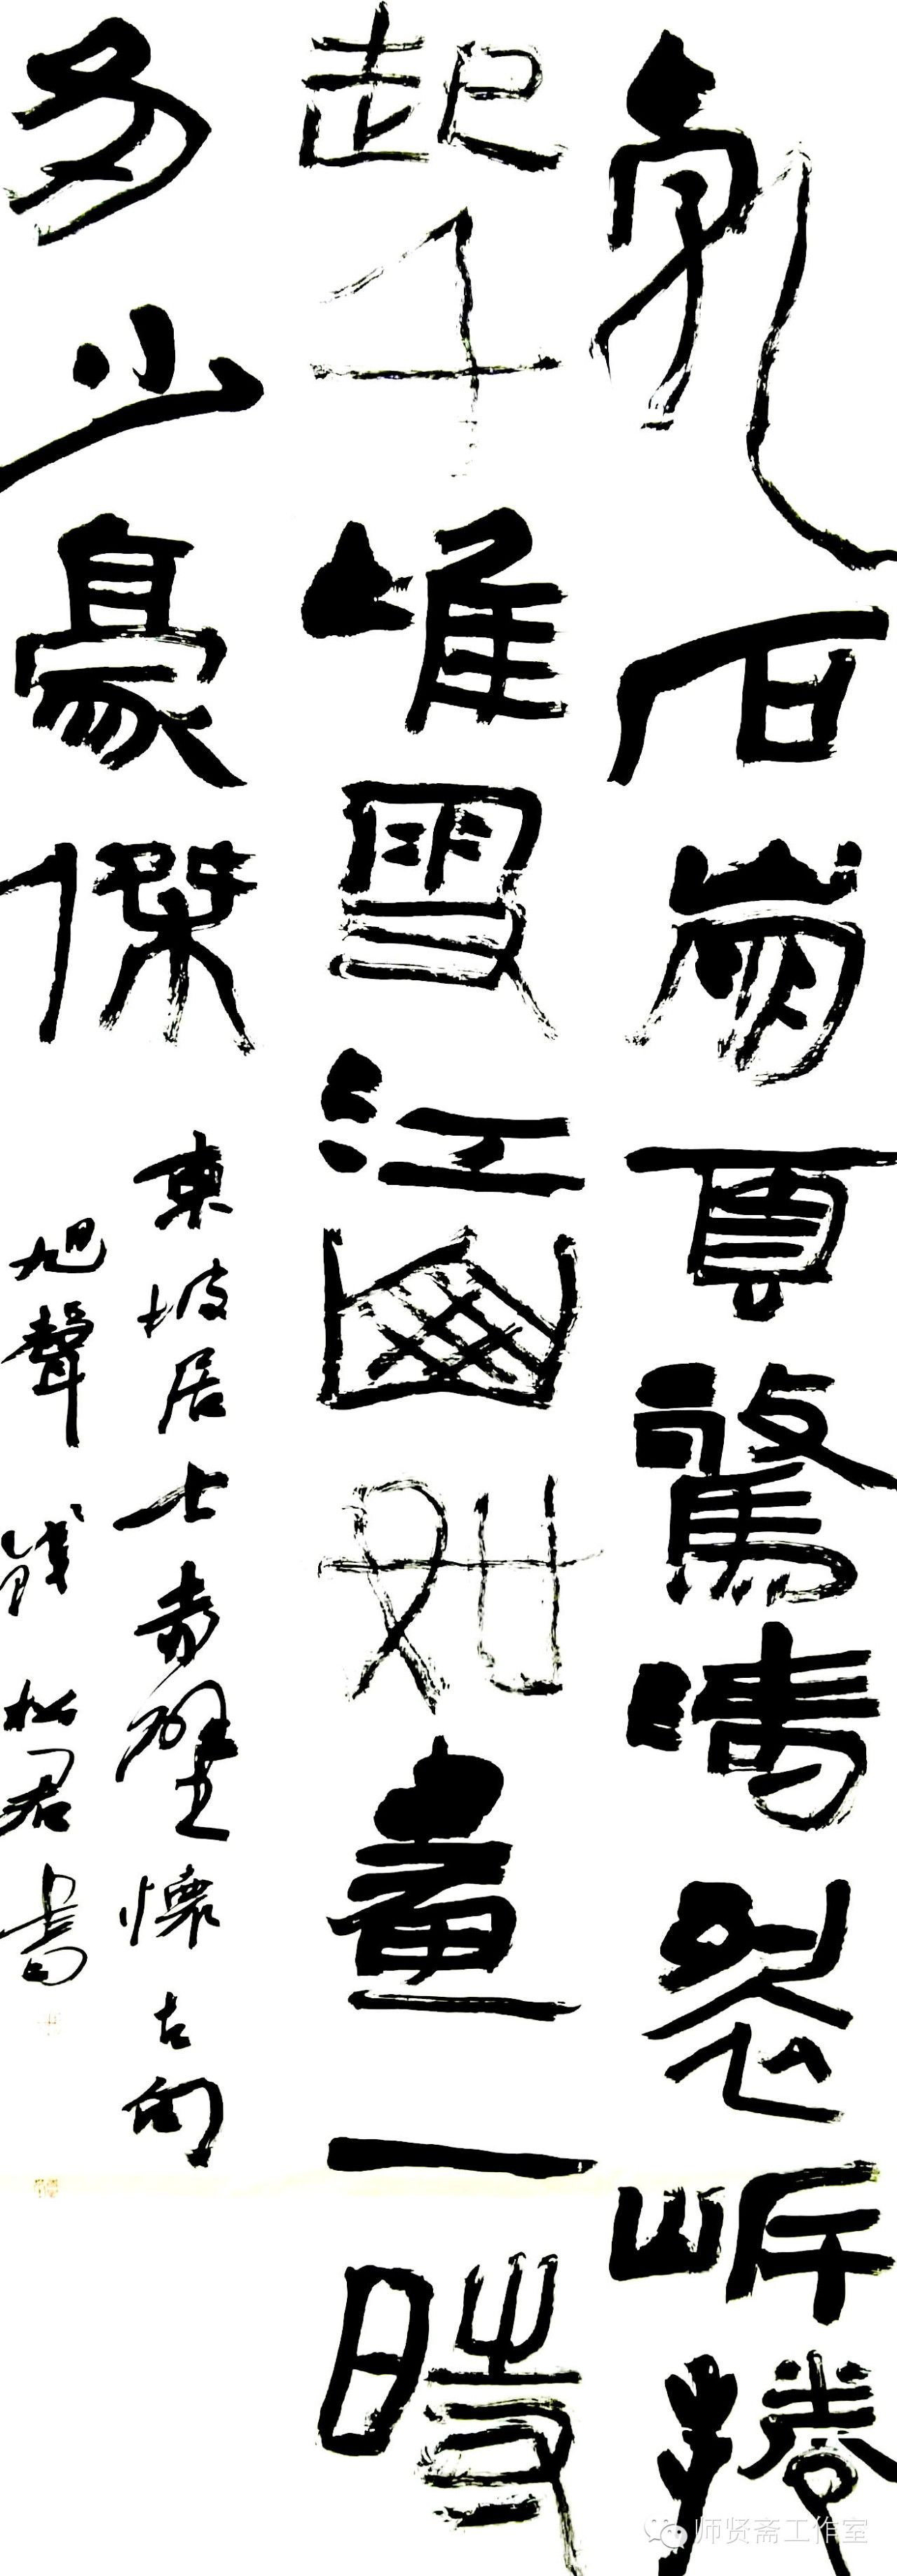 亂石崩雲驚濤裂岸捲
起千堆雪江山如畫一時
多少豪傑
東坡居士赤壁懷古句
旭聲 松君書
师贤斋工作室